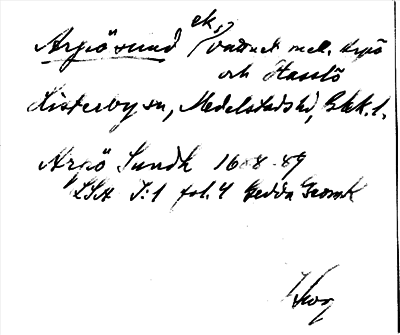 Arpösund ek, s? /vattnet mell. Arpö
och Hasslö
Listerby sn, Medelstads hd, Blek. l.
Arpö Sundh 1688-89
LSA I:1 fol. 4 Gedda Geomk